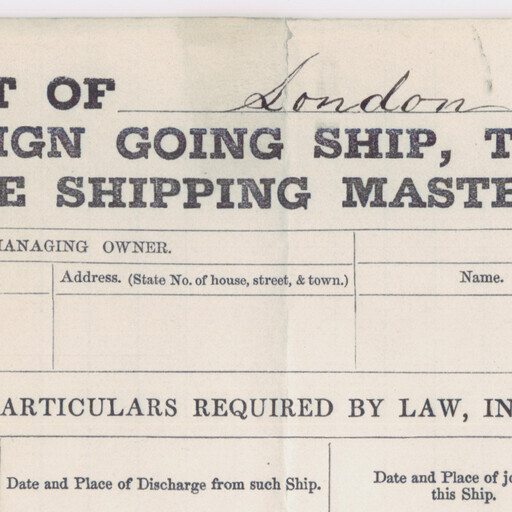 T OF London
IGN GOING SHIP, T
E SHIPPING MASTE
MANAGING OWNER.
Address. (State No. of house, street, & town.)
Name.
ARTICULARS REQUIRED BY LAW, IN
Date and Place of Discharge from such Ship.
Date and Place of jo
this Ship.